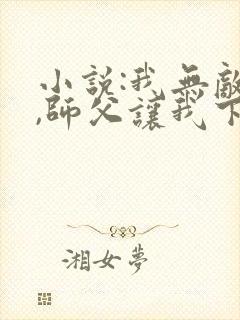 小說:我無敵
,師父讓我下
湘女夢